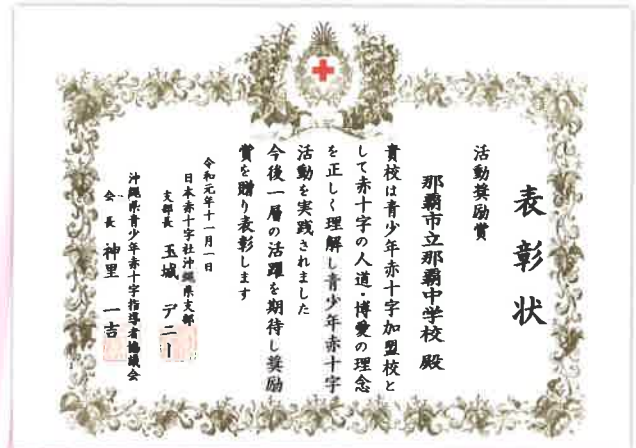 表彰状
活動奨励賞
那覇市立那覇中学校 殿
貴校は青少年赤十字加盟校と
して赤十字の人道・博愛の理念
を正しく理解し青少年赤十字
活動を実践されました
今後一層の活躍を期待し奨励
賞を贈り表彰します
令和元年十一月一日
日本赤十字社沖縄県支部
支部長 玉城 デニー
沖縄県青少年赤十字指導者協議会
会長 神里 一吉